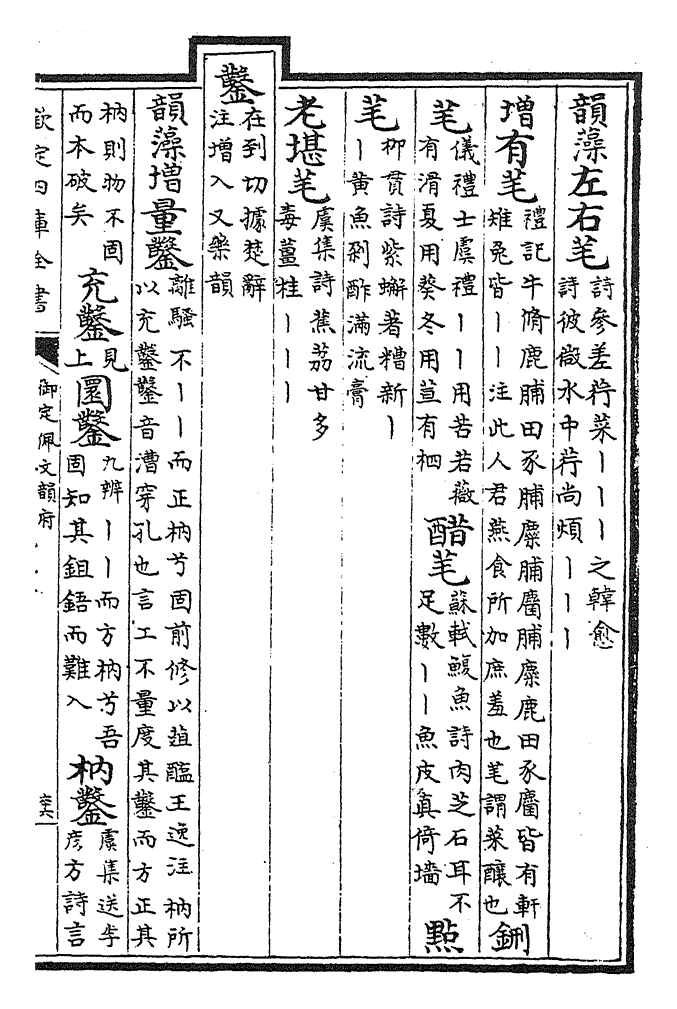 韻藻左右芼詩參差荇菜丨丨丨之韓愈
詩彼微水中荇尚煩丨丨丨
增有芼禮記牛脩鹿脯田豕脯麋脯麕脯麋鹿田豕麕皆有軒
雉兔皆丨丨注此人君燕食所加庶羞也芼謂菜釀也鉶
芼儀禮士虞禮丨丨用苦若薇
有滑夏用葵冬用荁有柶
醋芼蘇軾鰒魚詩肉芝石耳不
足數丨丨魚皮真倚墻點
芼柳貫詩紫蠏著糟新丨
丨黄魚剁酢滿流膏
老堪芼虞集詩蕉荔甘多
毒薑桂丨丨丨
鑿在到切據楚辭
注增入又藥韻
韻藻增量鑿離騷不丨丨而正枘兮固前修以葅醢王逸注枘所
以充鑿鑿音漕穿孔也言工不量度其鑿而方正其
枘則物不固
而本破矣
充鑿見
上
圜鑿九辨丨丨而方枘兮吾
固知其鉏鋙而難入
枘鑿虞集送李
彥方詩言
欽定四庫全書
御定佩文韻府